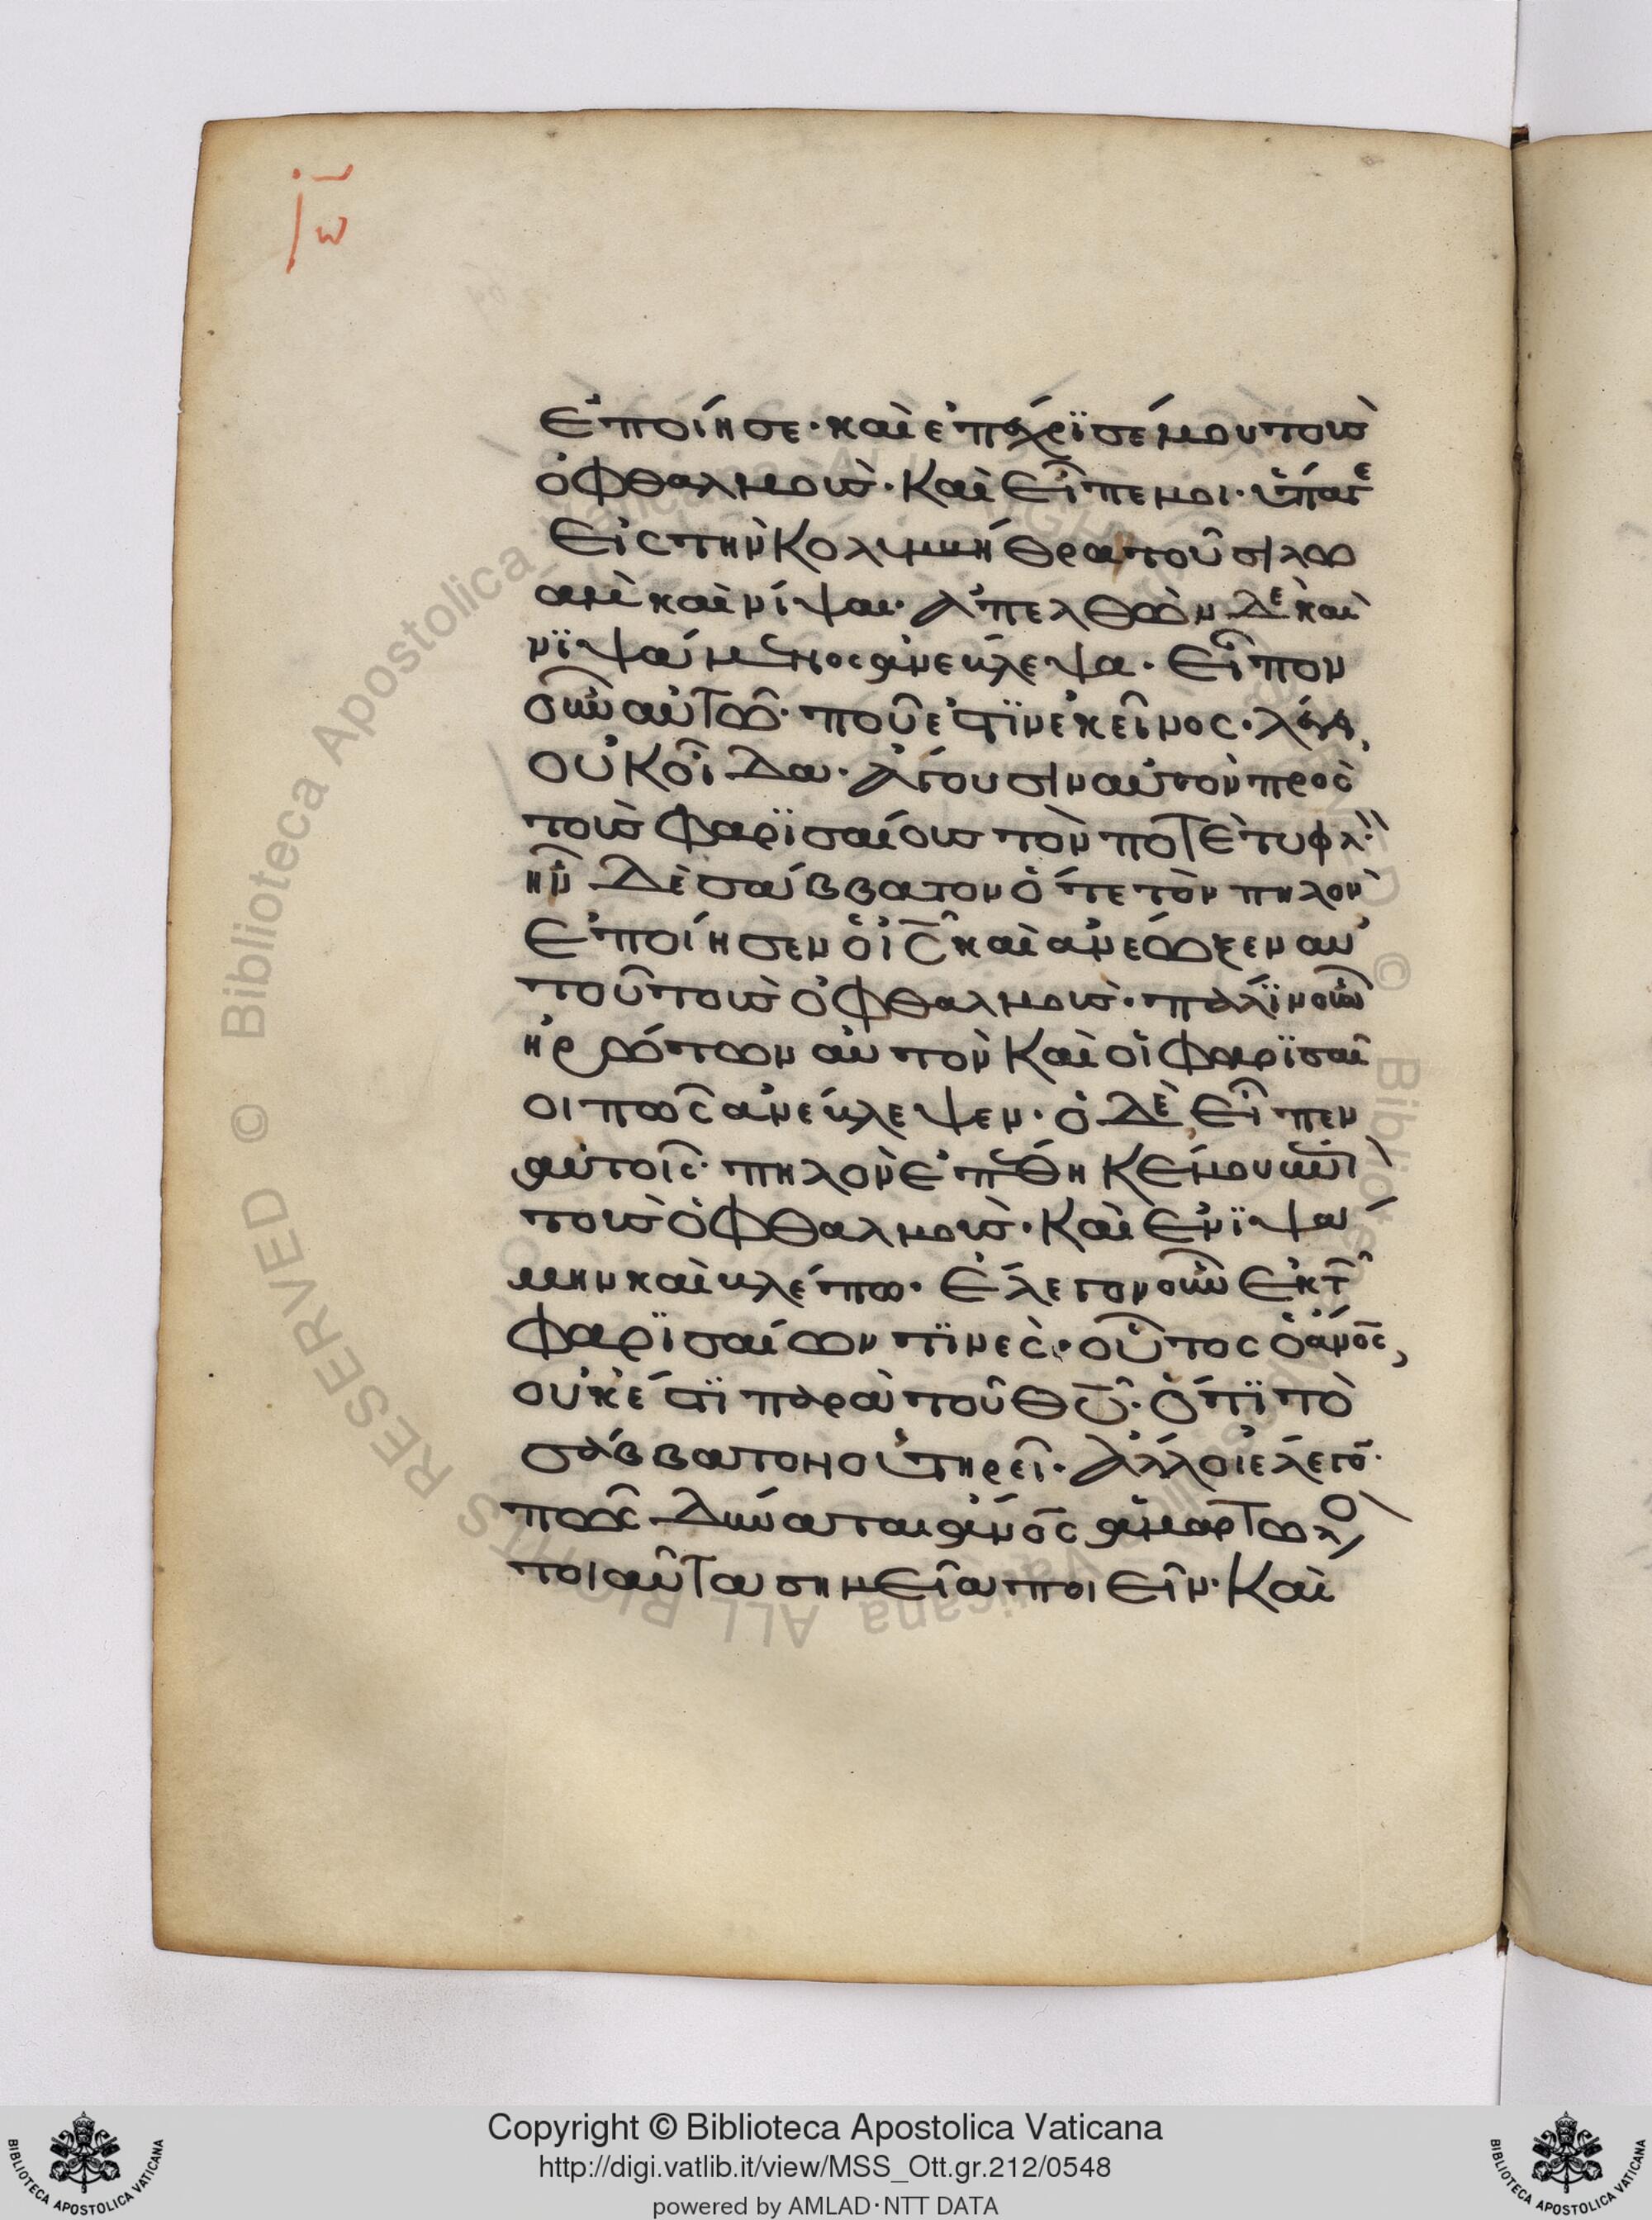 ἰω
ἐποίησε· καὶ ἐπέχρϊσέ μου τοὺς
ὀφθαλμοὺς· Καὶ εἶπε μοι· ὕπαγε
εἰς τὴν Κολυμβήθρα τοῦ σιλω
ὰμ καὶ νίψαι· ἀπελθὼν δὲ καὶ
νϊψάμενος ἀνέβλεψα· εἶπον
οὖν αὐτῶ· ποῦ ἐστϊν ἐκεῖνος· λέγει,
οὐΚ οἶδα· ἄγουσιν αὐτὸν πρὸς
τοὺς φαρϊσαίους τὸν ποτὲ τυφλὸν·
ἦν δὲ σάββατον ὅτε τὸν πηλὸν
ἐποίησεν ὁ ἰς καὶ ἀνέωξεν αὐ
τοῦ τοὺς ὀφθαλμοὺς· πάλϊν οὖν
ἠρώτων αὐτὸν Καὶ οἱ φαρϊσαῖ
οι πῶς ἀνέβλεψεν· ὁ δὲ εἶπεν
αὐτοῖς· πηλὸν ἐπέθηΚέ μου ἐπὶ
τοὺς ὀφθαλμοὺς· Καὶ ἐνϊψά
μην καὶ βλέπω· ἔλεγον οὖν ἐκ τῶν
φαρϊσαίων τϊνὲς· οὗτος ὁ ἄνος,
οὐκ ἔστϊ παρὰ τοῦ θυ· ὅτϊ τὸ
σάββατον οὐ τηρεῖ· ἄλλοι ἔλεγον·
πῶς δύναται ἄνος ἁμαρτωλὸς
τοιαῦτα σημεῖα ποιεῖν· Καὶ
© Biblioteca Apostolica Vaticana ALL RIGHTS RESERVED
Copyright © Biblioteca Apostolica Vaticana
http://digi.vatlib.it/view/MSS_Ott.gr.212/0548
powered by AMLAD·NTT DATA
BIBLIOTECA APOSTOLICA VATICANA
BIBLIOTECA APOSTOLICA VATICANA